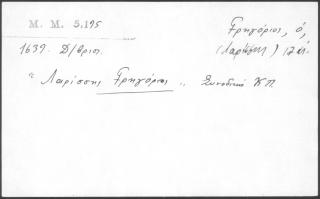 M. M. 5,195
Γρηγόριος, ὁ,
(Λαρίσσης) 17 αἰ.
1639. Δ/βριος.
" Λαρίσσης Γρηγόριος ,, Συνοδικὸ ΚΠ.